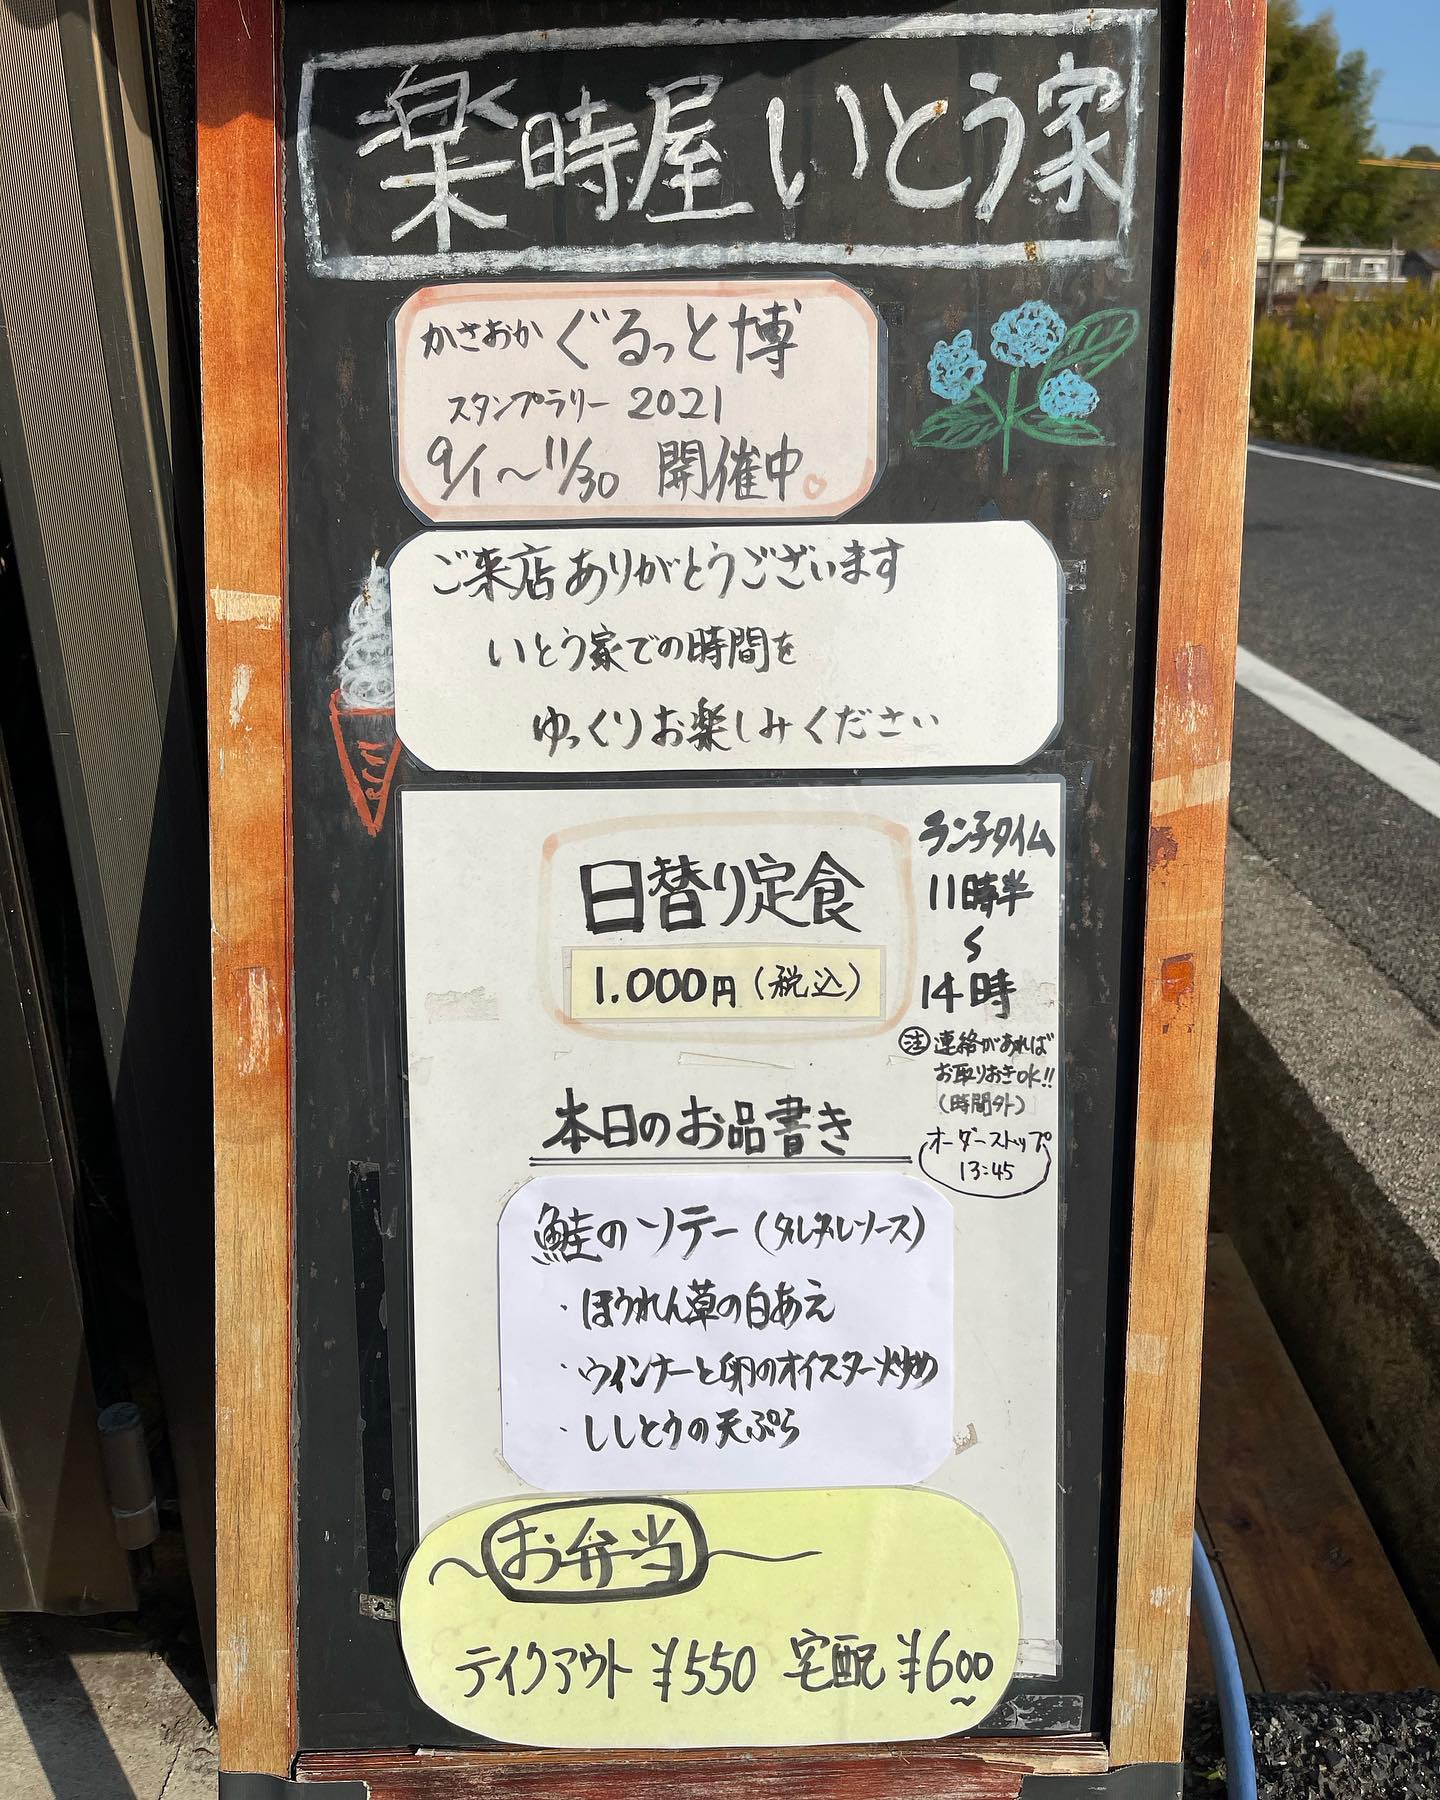 楽時屋 いとう家
かさおか ぐるっと博
スタンプラリー 2021
9/1～11/30 開催中
ご来店ありがとうございます
いとう家での時間を
ゆっくりお楽しみください
日替り定食
1.000円(税込)
ランチタイム
11時半
～
14時
注 連絡があれば
お取りおきOK!!
(時間外)
オーダーストップ
13:45
本日のお品書き
鮭のソテー(ダレダレソース)
・ほうれん草の白あえ
・ウインナーと卵のオイスター炒め
・ししとうの天ぷら
～お弁当～
テイクアウト ¥550 宅配 ¥600～